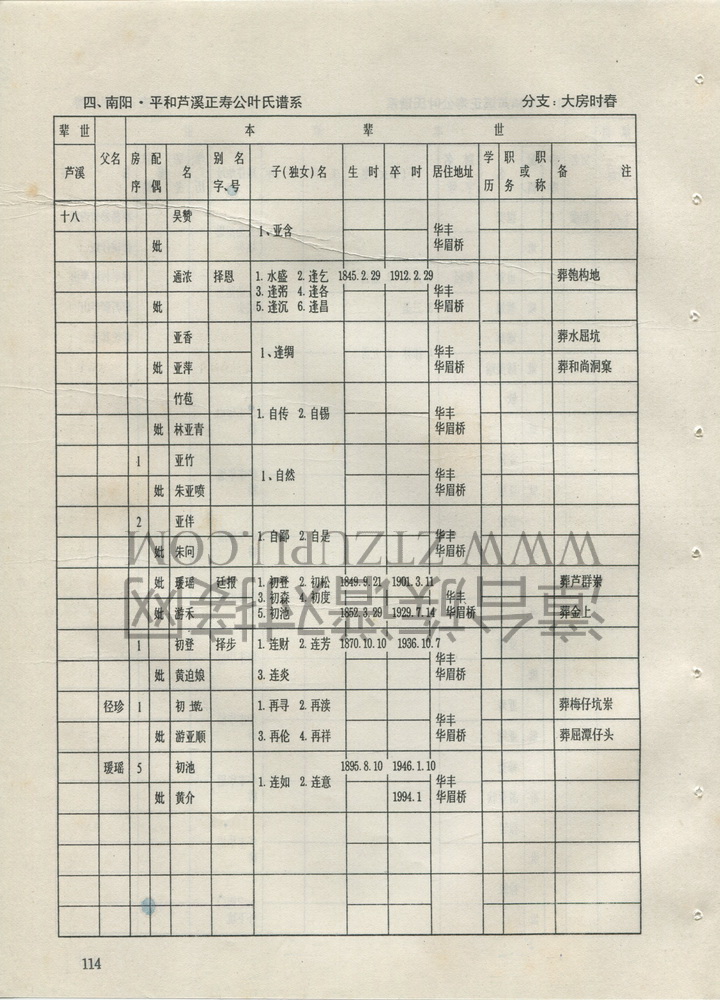 四、南阳·平和芦溪正寿公叶氏谱系 分支：大房时春
辈世 本辈世
芦溪 父名 房序 配偶 名 别名字、号 子(独女)名 生时 卒时 居住地址 学历 职务或职称 备注
十八 吴赞 1、亚含 华丰
妣 华眉桥
通浓 择恩 1.水盛 2.逢乞 1845.2.29 1912.2.29 葬匏构地
3.逢粥 4.逢各 华丰
妣 5.逢沉 6.逢昌 华眉桥
亚香 1、逢绸 华丰 葬水屈坑
妣 亚萍 华眉桥 葬和尚洞窠
竹苞 1.自传 2.自锡 华丰
妣 林亚青 华眉桥
1 亚竹 1、自然 华丰
妣 朱亚喷 华眉桥
2 亚伴 1.自鄙 2.自是 华丰
妣 朱问 华眉桥
妣 瑗瑶 廷报 1.初登 2.初松 1849.9.21 1901.3.11 葬芦群崇
3.初森 4.初度 华丰
妣 游禾 5.初池 1852.3.29 1929.7.14 华眉桥 葬金上
1 初登 择步 1.连财 2.连芳 1870.10.10 1936.10.7
华丰
妣 黄迫娘 3.连炎 华眉桥
径珍 1 初 1.再寻 2.再渎 葬梅仔坑崇
华丰
妣 游亚顺 3.再伦 4.再祥 华眉桥 葬屈潭仔头
瑗瑶 5 初池 1895.8.10 1946.1.10
1.连如 2.连意 华丰
妣 黄介 1994.1 华眉桥
114
WWW.ZTZUPU.COM
漳台族谱对接网